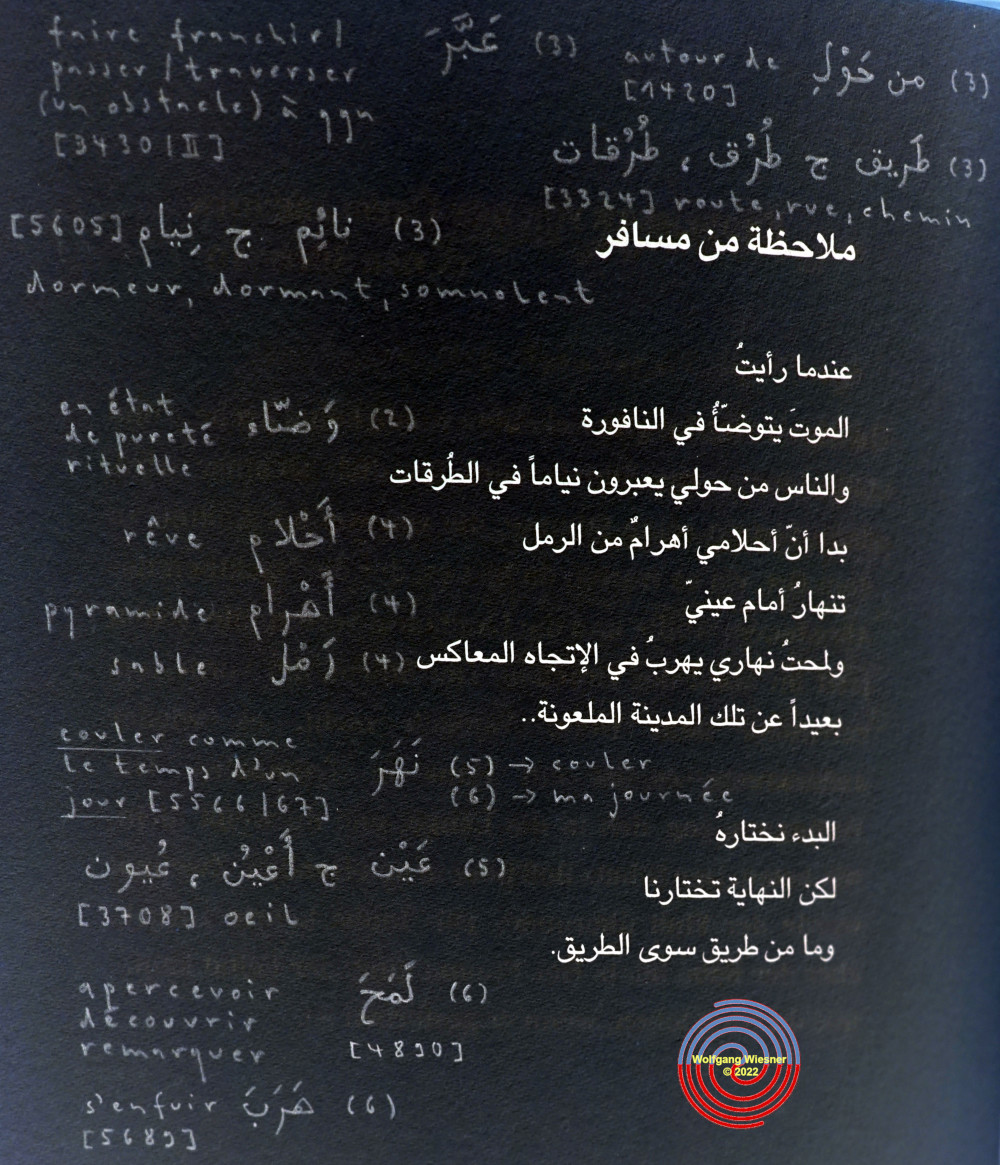 faire franchir /
passer / traverser
(un obstacle) à qqn
[3430 / II]
عَبَّرَ (3)
autour de من حَوْلِ (3)
[1420]
طَريق ج طُرُق ، طُرُقات (3)
[3324] route, rue, chemin
[5605] نائِم ج نِيام (3)
dormeur, dormant, somnolent
ملاحظة من مسافر
عندما رأيتُ
الموتَ يتوضّأُ في النافورة
والناس من حولي يعبرون نياماً في الطُرقات
بدا أنّ أحلامي أهرامٌ من الرمل
تنهارُ أمام عينيّ
ولمحتُ نهاري يهربُ في الإتجاه المعاكس
بعيداً عن تلك المدينة الملعونة..
البدء نختارهُ
لكن النهاية تختارنا
وما من طريق سوى الطريق.
en état
de pureté وَضّاء (2)
rituelle
rêve أَحْلام (4)
pyramide أَهْرام (4)
sable رَمْل (4)
couler comme
le temps d'un
jour [5566/67]
نَهَرَ (5) → couler
(6) → ma journée
عَيْن ج أَعْيُن ، عُيون (5)
[3708] oeil
apercevoir لَمَحَ (6)
découvrir
remarquer [4890]
s'enfuir هَرَبَ (6)
[5689]
Wolfgang Wiesner
© 2022